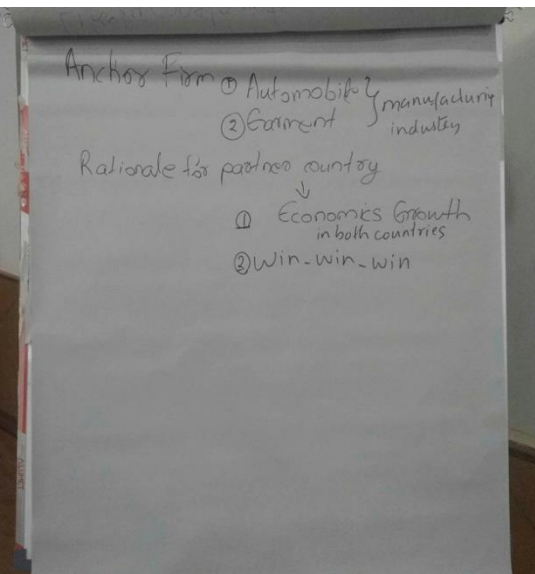 Anchor Firm ① Automobile } manufacturing
② Garment industry
Rationale for partner country
↓
① Economics Growth
in both countries
② Win-win-win